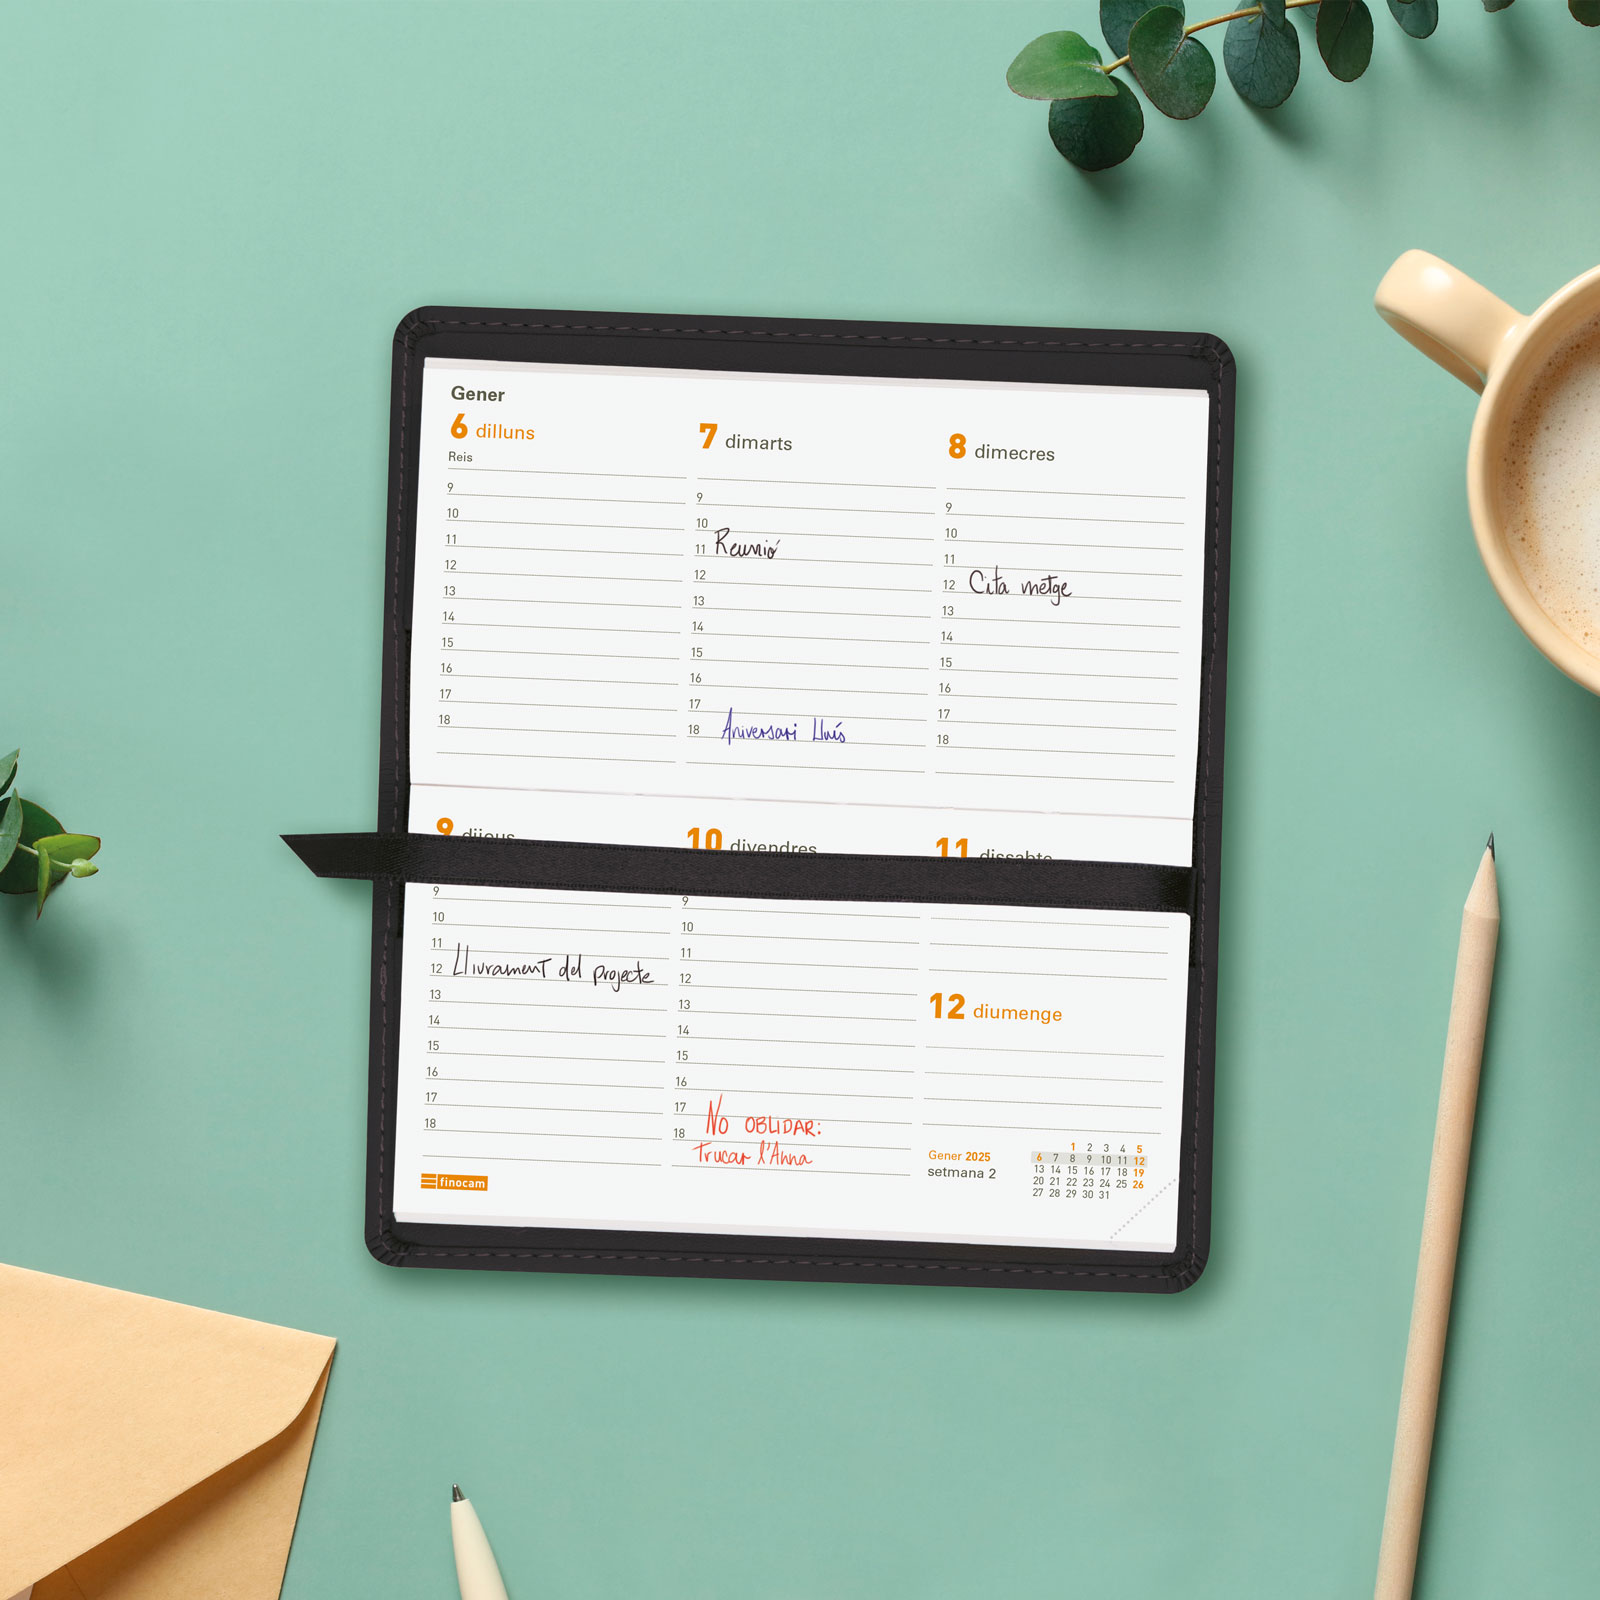 Gener
6 dilluns
Reis
9
10
11
12
13
14
15
16
17
18
7 dimarts
9
10
11 Reunió
12
13
14
15
16
17
18 Aniversari Lluís
8 dimecres
9
10
11
12 Cita metge
13
14
15
16
17
18
9 dijous
9
10
11
12 Llivrament del projecte
13
14
15
16
17
18
finocam
10 divendres
9
10
11
12
13
14
15
16
17 NO OBLIDAR:
18 Trucar l'Anna
11 dissabte
12 diumenge
Gener 2025
setmana 2
1 2 3 4 5
6 7 8 9 10 11 12
13 14 15 16 17 18 19
20 21 22 23 24 25 26
27 28 29 30 31